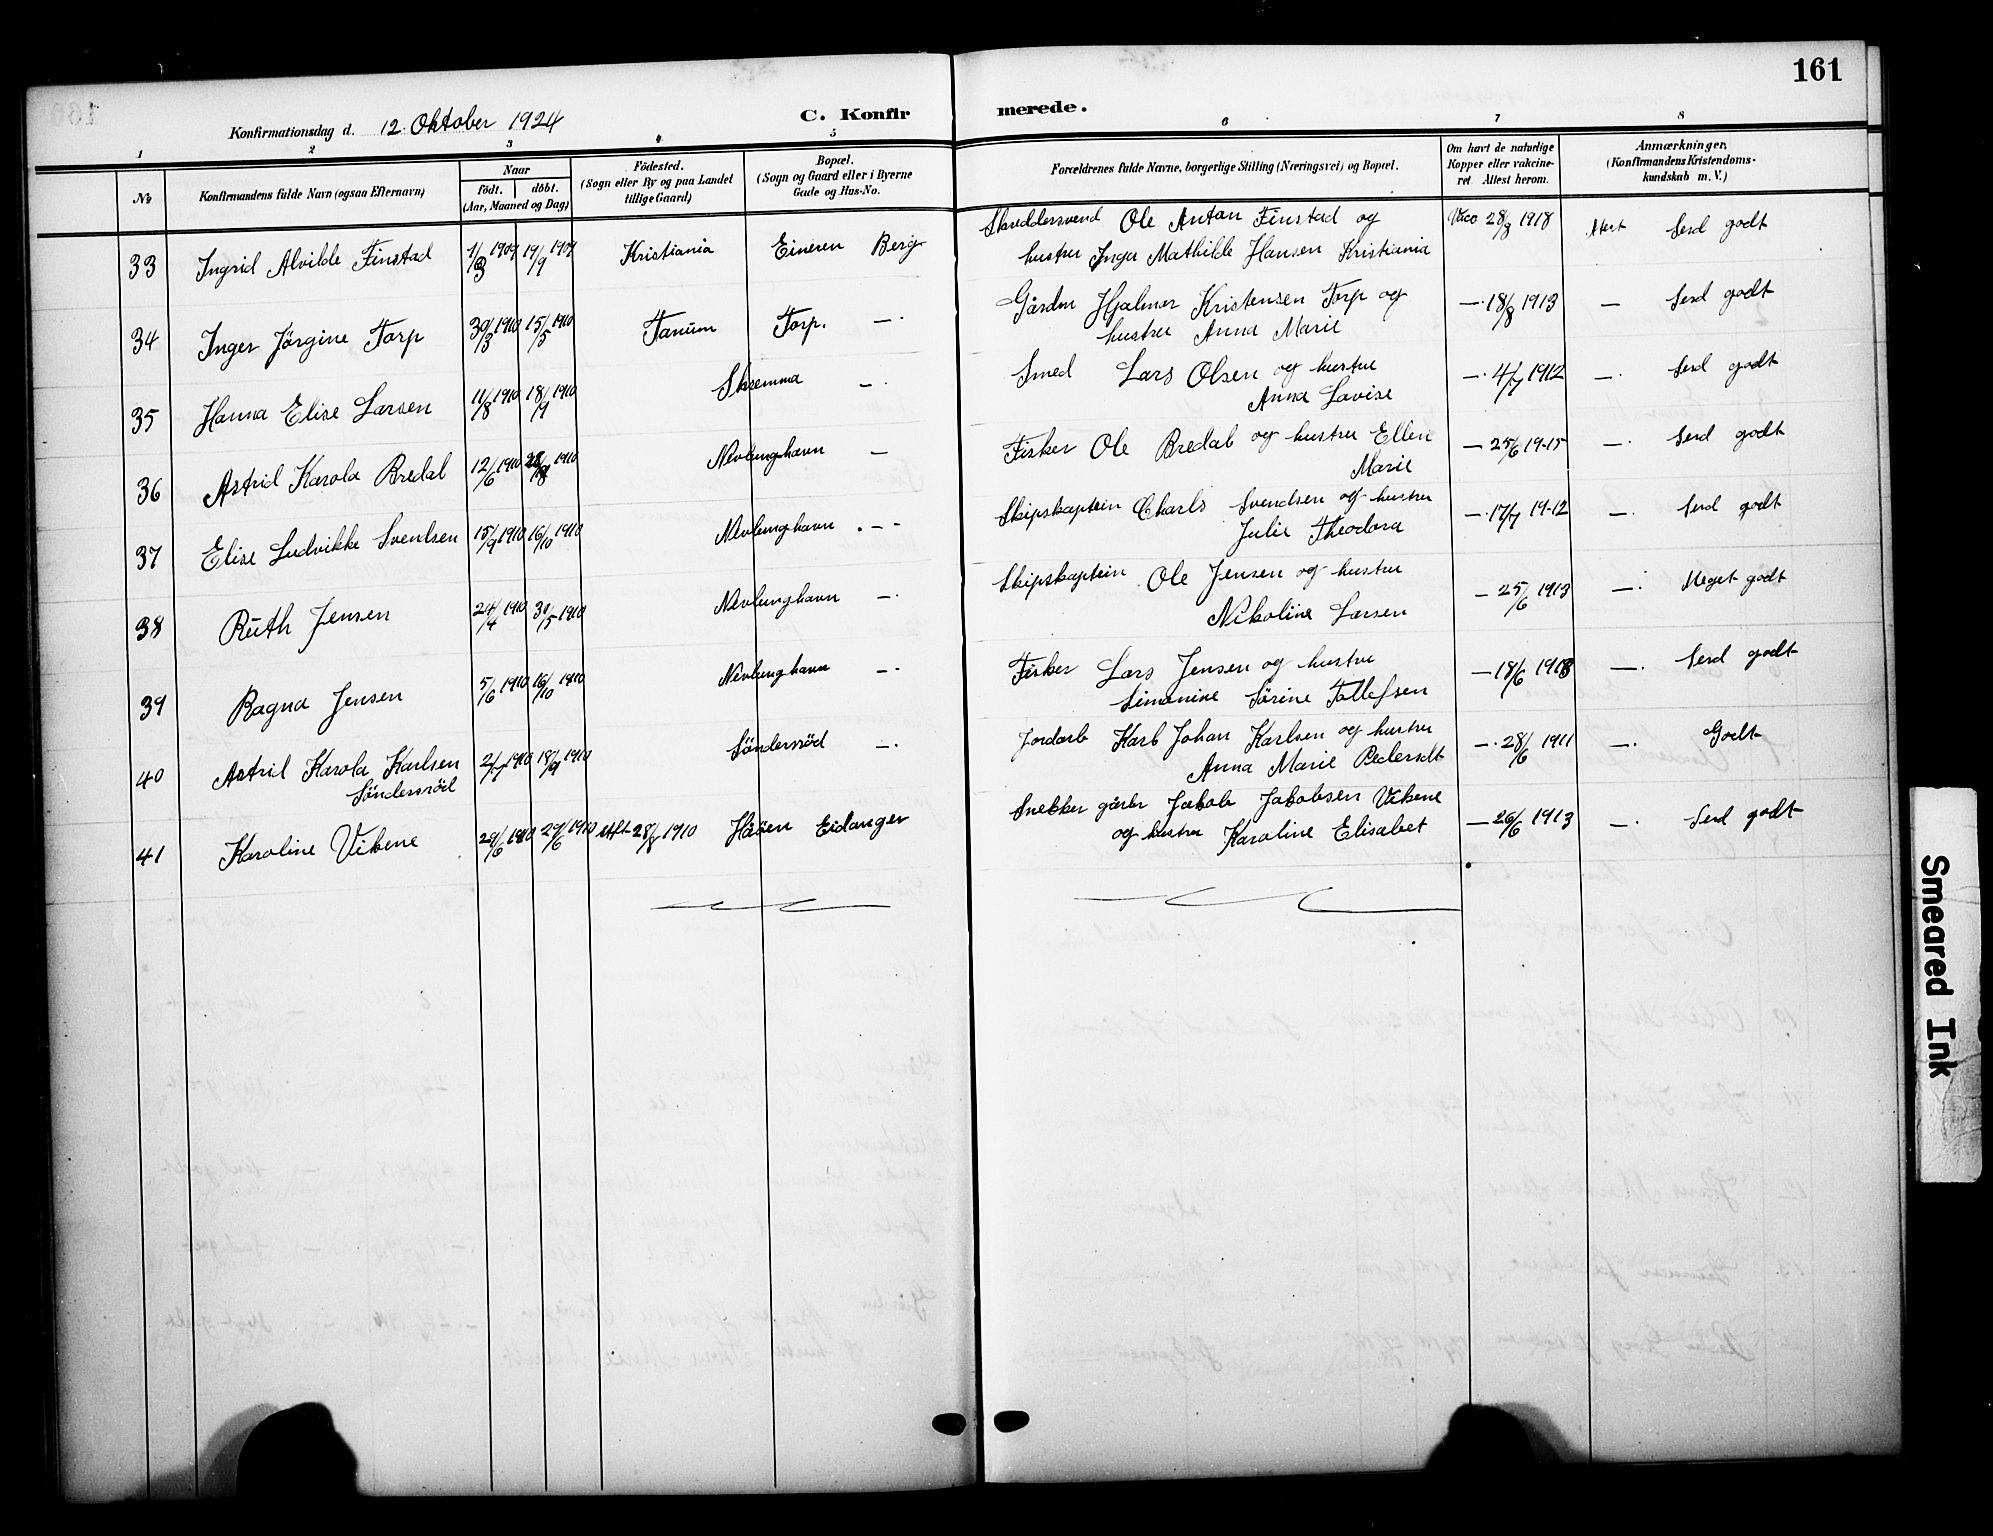 161
Konfirmationsdag d. 12. Oktober 1924 C. Konfirmerede.
1 2 3 4 5 6 7 8
No Konfirmandens fulde Navn (ogsaa Efternavn) Naar født. døbt. (Aar, Maaned og Dag) Födested. (Sogn eller By og paa Landet tillige Gaard) Bopæl. (Sogn og Gaard eller i Byerne Gade og Hus-No. Forældrenes fulde Navne, borgerlige Stilling (Næringsvei) og Bopæl. Om havt de naturlige Kopper eller vakcineret. Attest herom. Anmærkninger, (Konfirmandens Kristendomskundskab m. V.)
33 Ingrid Alvilde Finstad 1/3 1909 19/9 1909 Kristiania Eineren Berg Skreddersvend Ole Anton Finstad og Vacc 28/8 1918 Attest Serd godt
hustru Inga Mathilde Hansen Kristiania
34 Inger Jörgine Torp 30/3 1910 15/5 1910 Tanum Torp. —. Gården Hjalmar Kristensen Torp og —. 18/8 1913 — Serd godt
hustru Anna Marie
35 Hanna Elise Larsen 11/8 1910 18/9 1910 Skremma —. Smed Lars Olsen og hustru —. 4/7 1912 —. Serd godt
Anna Lovise
36 Astrid Karola Bredal 12/6 1910 1910 Nevlunghavn — Fisker Ole Bredal og hustru Ellen — 25/6 19-15 —. Serd godt
Marie
37 Elise Ludvikke Svendsen 15/9 1910 16/10 1910 Nevlunghavn . – – Skipskaptein Charls Svendsen og hustru —. 17/7 19-12 —. Serd godt
Julie Theodora
38 Ruth Jensen 24/4 1910 30/5 1910 Nevlunghavn —. Skipskaptein Ole Jensen og hustru — 25/6 1913 —. Meget godt
Nikoline Larsen
39 Ragna Jensen 5/6 1910 16/10 1910 Nevlunghavn —. Fisker Lars Jensen og hustru — 18/6 1918 —. Serd godt
Simonine Sörine Tollefsen
40 Astrid Karola Karlsen 2/7 1910 18/9 1910 Sönderröd —. Jordarb Karl Johan Karlsen og hustru —. 28/6 1911 —. Godt
Sönderröd Anna Marie Pedersdt
41 Karoline Vikene 1910 29/6 1910 Utfl. 28/8 1910 Håöen Eidanger Snekker gårbr Jakob Jakobsen Vikene — 26/6 1913 —. Serd godt
og hustru Karoline Elisabet
Smeared Ink